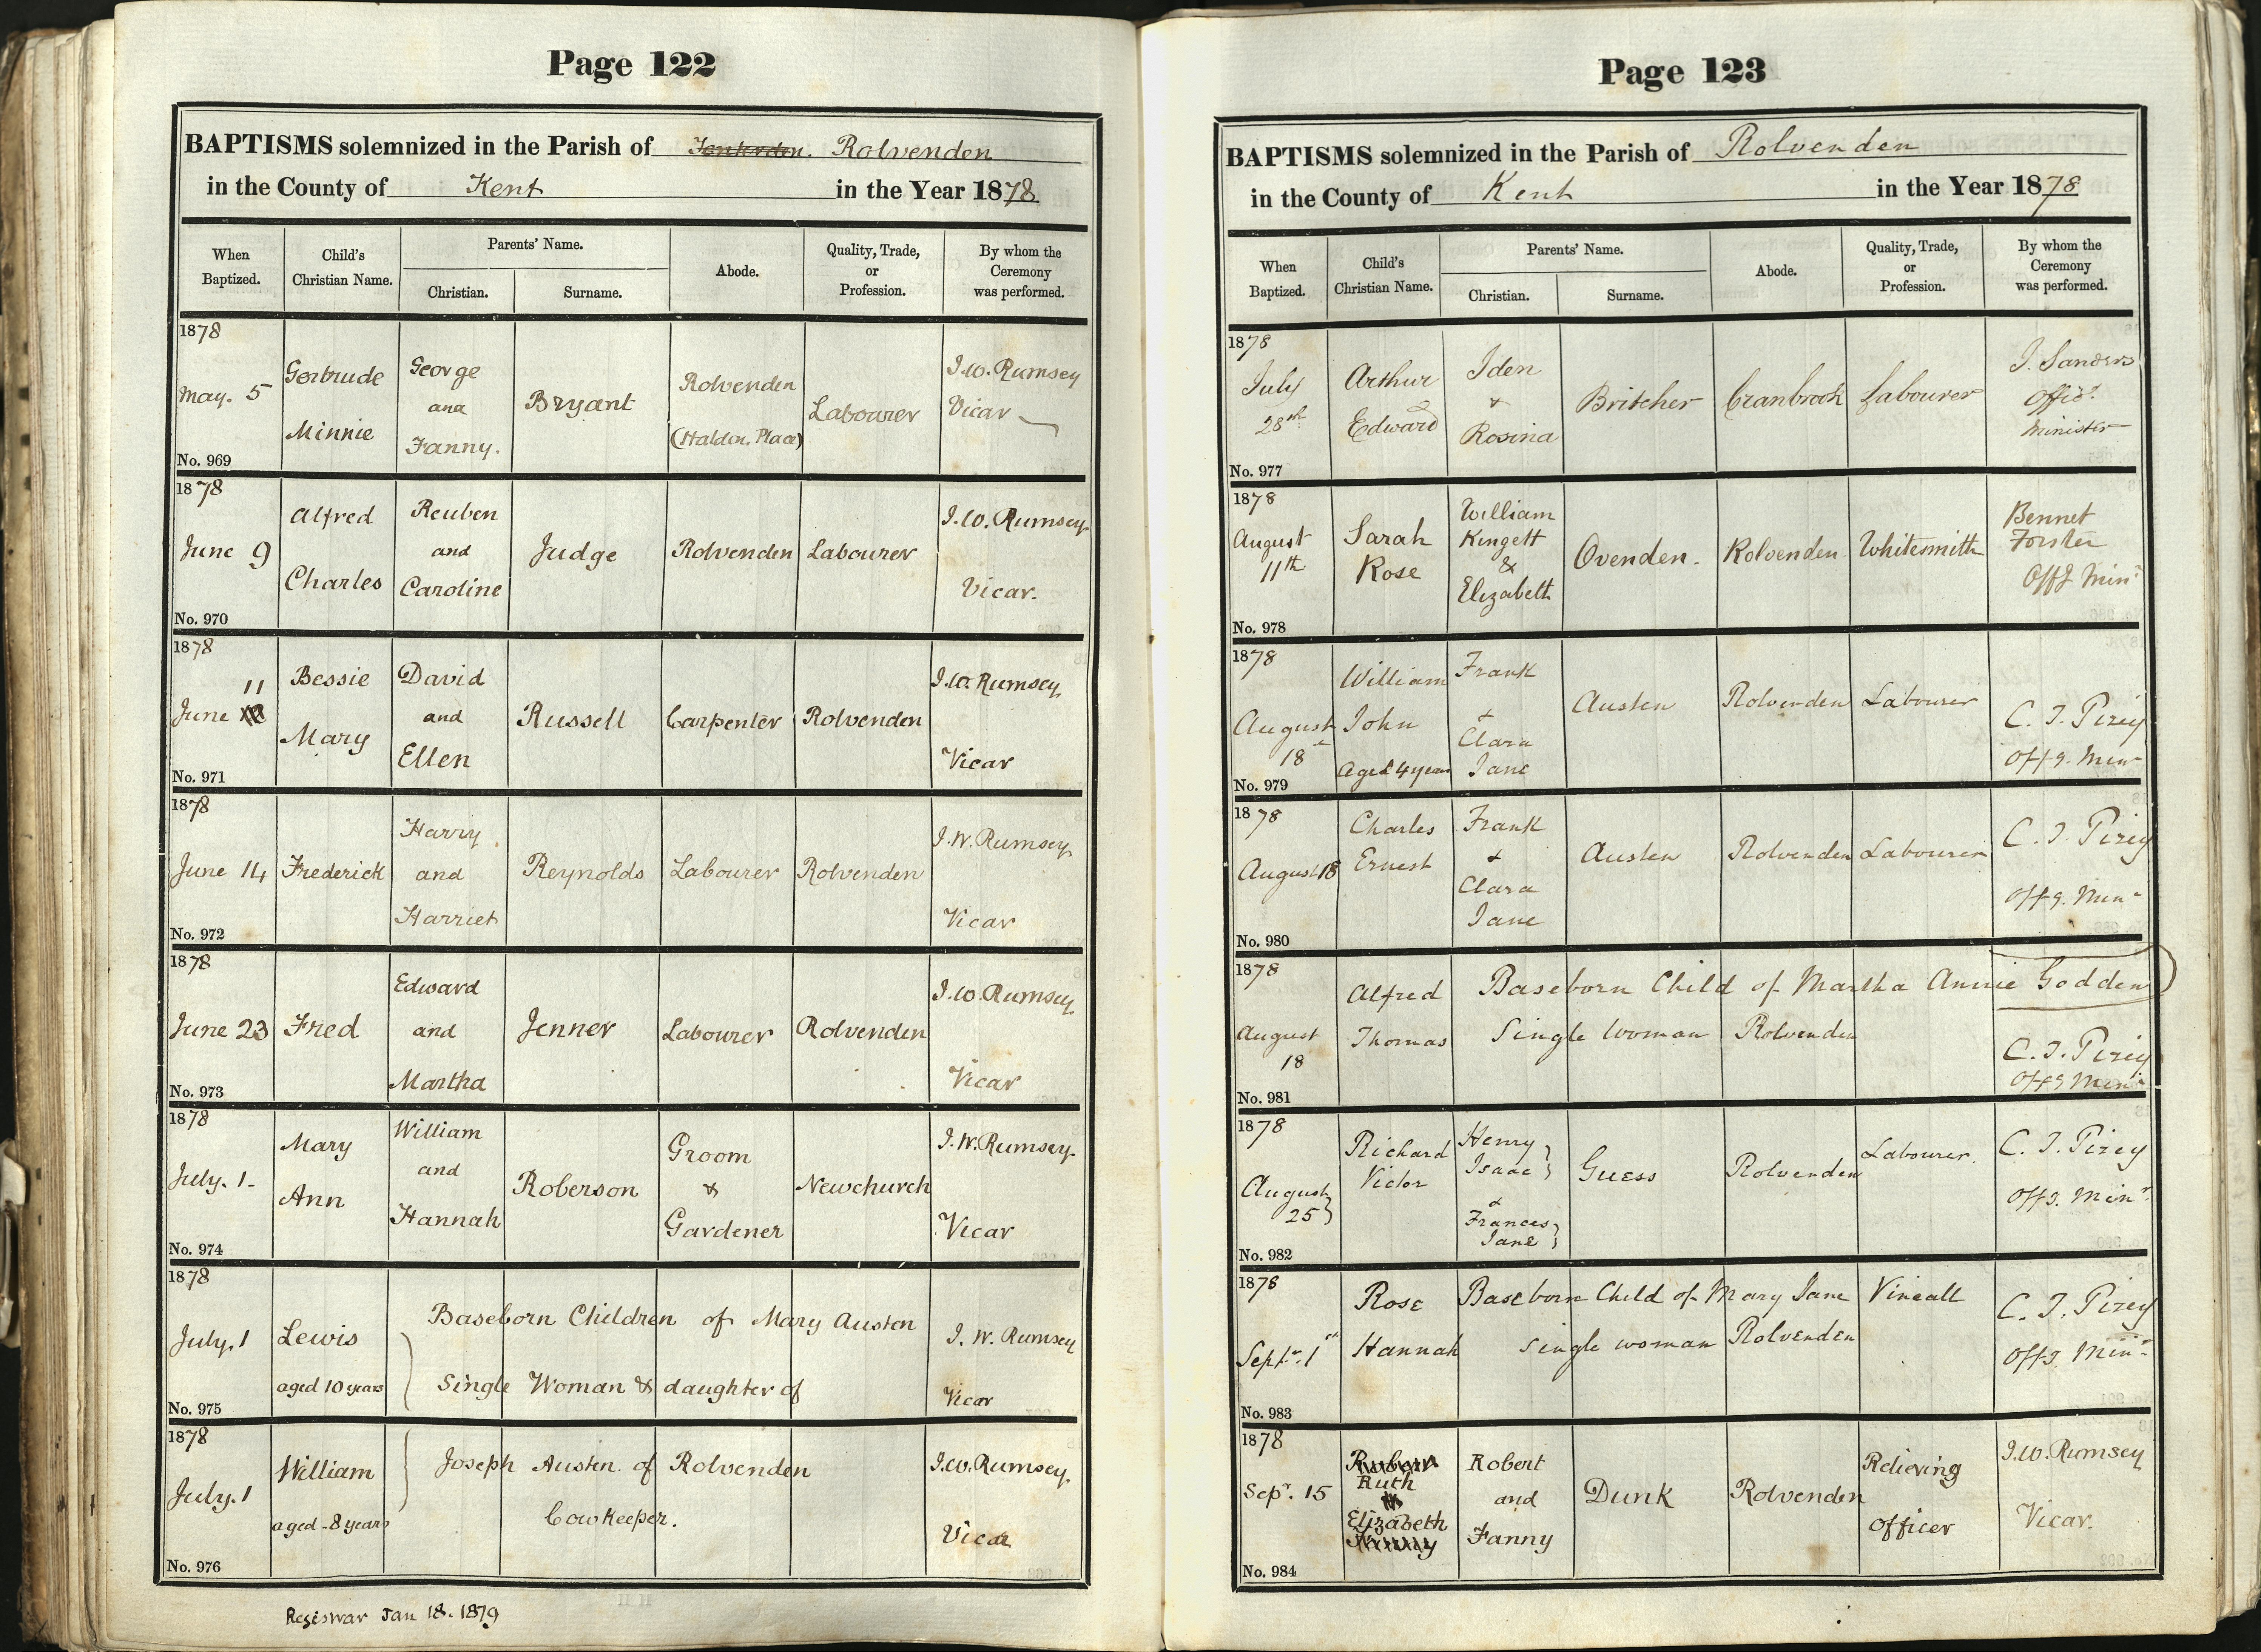 Page 122
BAPTISMS solemnized in the Parish of Tenterden. Rolvenden
in the County of Kent in the Year 1878
When Baptized.
Child's Christian Name.
Parents' Name.
Christian.
Surname.
Abode.
Quality, Trade, or Profession.
By whom the Ceremony was performed.
1878
May. 5
No. 969
Gertrude
Minnie
George
and
Fanny.
Bryant
Rolvenden
(Haldn. Place)
Labourer
J. W. Rumsey
Vicar
1878
June 9
No. 970
Alfred
Charles
Reuben
and
Caroline
Judge
Rolvenden
Labourer
J. W. Rumsey
Vicar.
1878
11
June
No. 971
Bessie
Mary
David
and
Ellen
Russell
Carpenter
Rolvenden
J. W. Rumsey
Vicar
1878
June 14
No. 972
Frederick
Harry
and
Harriet
Reynolds
Labourer
Rolvenden
J. W. Rumsey
Vicar
1878
June 23
No. 973
Fred
Edward
and
Martha
Jenner
Labourer
Rolvenden
J. W. Rumsey
Vicar
1878
July. 1
No. 974
Mary
Ann
William
and
Hannah
Roberson
Groom
&
Gardener
Newchurch
J. W. Rumsey.
Vicar
1878
July. 1
No. 975
Lewis
aged 10 years
Baseborn Children of Mary Austen
Single Woman & daughter of
J. W. Rumsey
Vicar
1878
July. 1
No. 976
William
aged 8 years
Joseph Austen of Rolvenden
Cowkeeper.
J. W. Rumsey
Vicar
Jan 18. 1879
Page 123
BAPTISMS solemnized in the Parish of Rolvenden
in the County of Kent in the Year 1878
When Baptized.
Child's Christian Name.
Parents' Name.
Christian.
Surname.
Abode.
Quality, Trade, or Profession.
By whom the Ceremony was performed.
1878
July
28th
No. 977
Arthur
Edward
Iden
+
Rosina
Britcher
Cranbrook
Labourer
J. Sanders
Offic.
Minister
1878
August
11th
No. 978
Sarah
Rose
William
Kingett
&
Elizabeth
Ovenden.
Rolvenden
Whitesmith
Bennet
Forster
Offg Minr
1878
August
18
No. 979
William
John
Aged 4 years
Frank
+
Clara
Jane
Austen
Rolvenden
Labourer
C. J. Pizey
Offg. Minr
1878
August 18
No. 980
Charles
Ernest
Frank
+
Clara
Jane
Austen
Rolvenden
Labourer
C. J. Pizey
Offg. Minr
1878
August
18
No. 981
Alfred
Thomas
Baseborn Child of Martha Annie Godden
Single Woman Rolvenden
C. J. Pizey
Offg Minr
1878
August
25
No. 982
Richard
Victor
Henry
Isaac
+
Frances
Jane
Guess
Rolvenden
Labourer.
C. J. Pizey
Offg. Minr
1878
Septr. 1st
No. 983
Rose
Hannah
Baseborn Child of Mary Jane Vineall
single woman Rolvenden
C. J. Pizey
Offg. Minr
1878
Sepr. 15
No. 984
Ruth
Elizabeth
Robert
and
Fanny
Dunk
Rolvenden
Relieving
Officer
J. W. Rumsey
Vicar.